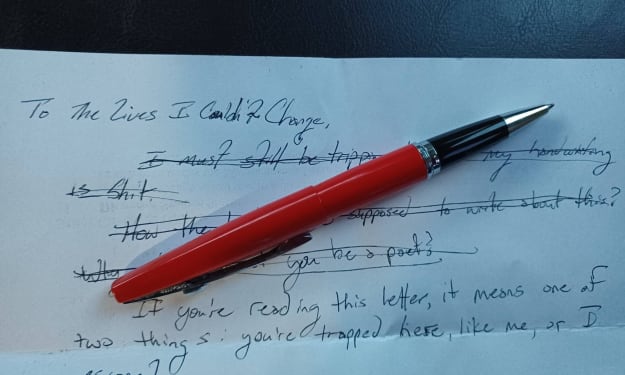 To The Lives I Couldn't Change,
I must still be trippin my handwriting
is shit
How the supposed to write about this?
Why you be a poet?
If you're reading this letter, it means one of
two things: you're trapped here, like me, or I